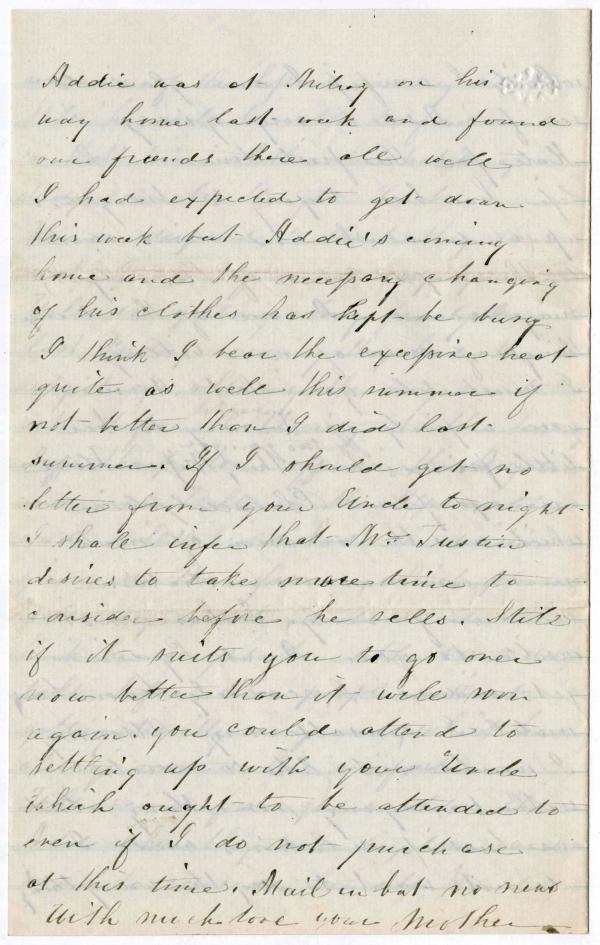 Addie was at Milroy on his
way home last week and found
our friends there all well
I had expected to get down
this week but Addie's coming
home and the necessary changing
of his clothes has kept be busy
I think I bear the excessive heat
quite as well this summer if
not better than I did last
summer. If I should get no
letter from your Uncle to night
I shall infer that Mr. Justin
desires to take more time to
consider before he sells. Still
if it suits you to go over
now better than it will soon
again. you could attend to
settling up with your Uncle
which ought to be attended to
even if I do not purchase
at this time. Mail in but no news
With much love your Mother